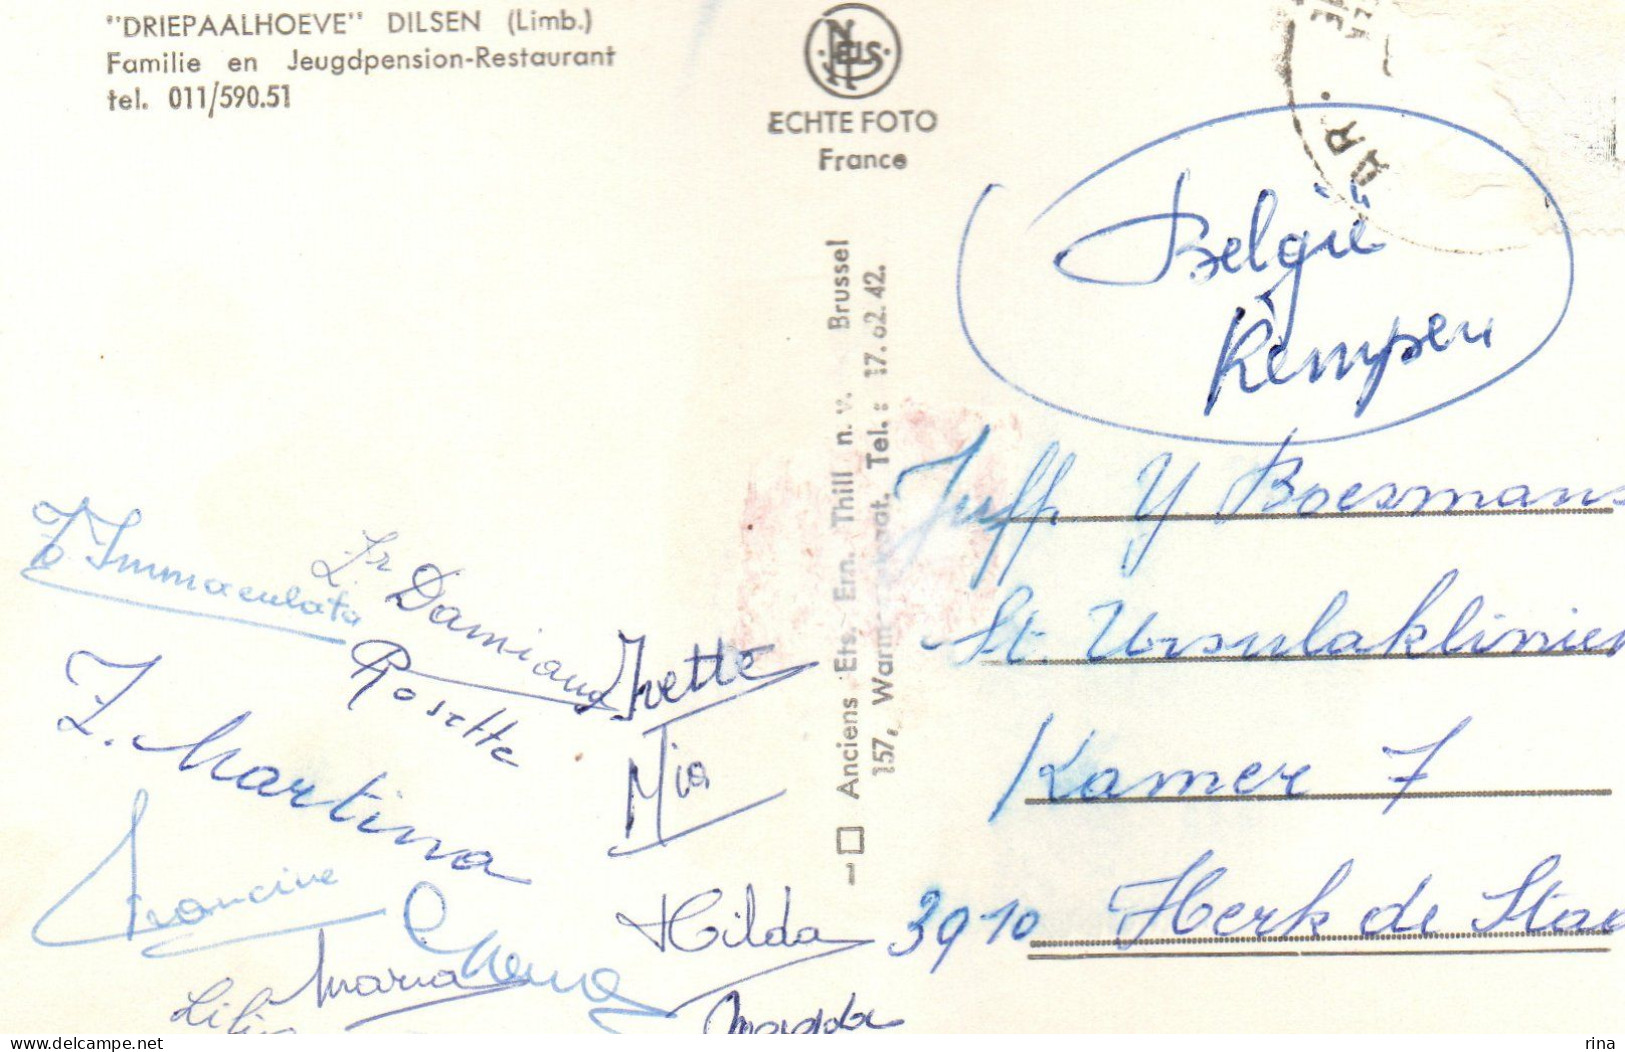 "DRIEPAALHOEVE" DILSEN (Limb.)
Familie en Jeugdpension-Restaurant
tel. 011/590.51
NELS
ECHTE FOTO
France
Anciens Ets. Ern. Thill n. v. Brussel
157, Tel.: 17.62.42.
België
Kempen
Juff. Y Boesmans
St. Ursulaklinie
Kamer 7
3910 Herk de Stad
Z. Immaculata
Zr Damiana
Rosette
Yvette
Z. Martina
Mia
Francine
Hilda
Maria
Magda
www.delcampe.net
rina